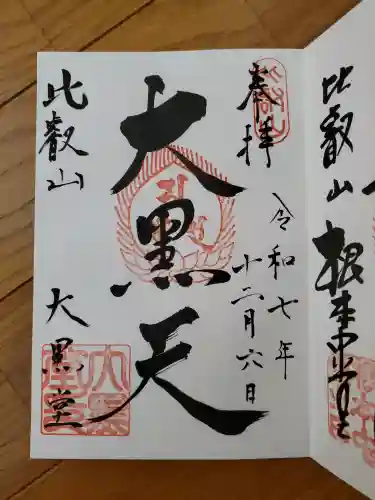 比叡山 根本中堂
奉拝
令和七年
十二月六日
大黒天
比叡山 大黒堂